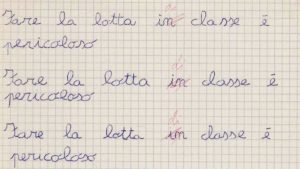 Fare la lotta in di classe é
pericoloso
Fare la lotta in di classe é
pericoloso
Fare la lotta in di classe é
pericoloso